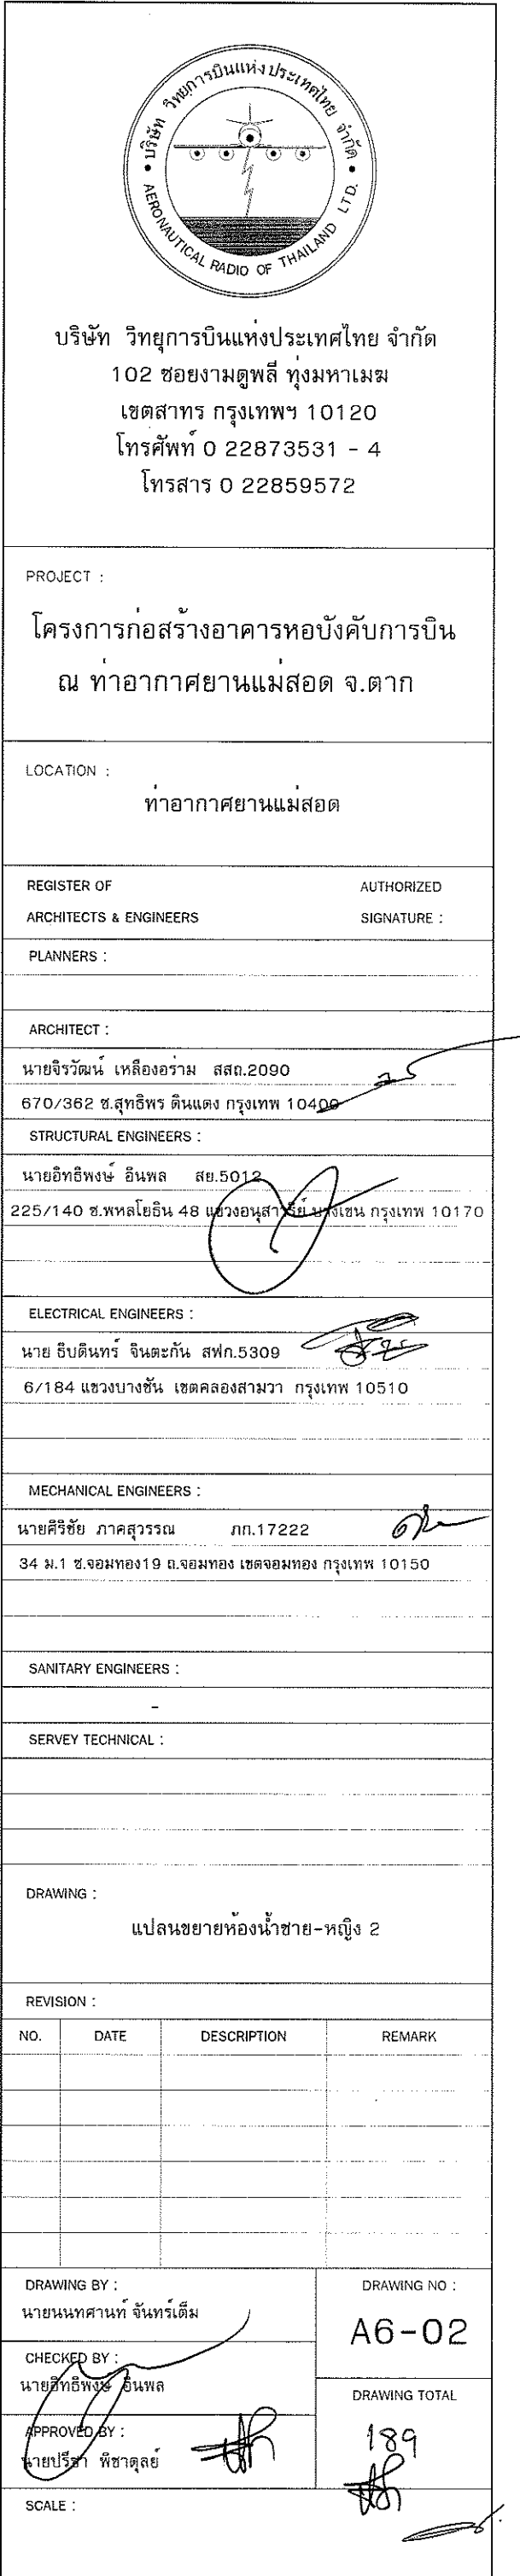 • บริษัท วิทยุการบินแห่งประเทศไทย จำกัด •
AERONAUTICAL RADIO OF THAILAND LTD.
บริษัท วิทยุการบินแห่งประเทศไทย จำกัด
102 ซอยงามดูพลี ทุ่งมหาเมฆ
เขตสาทร กรุงเทพฯ 10120
โทรศัพท์ 0 22873531 - 4
โทรสาร 0 22859572
PROJECT :
โครงการก่อสร้างอาคารหอบังคับการบิน
ณ ท่าอากาศยานแม่สอด จ.ตาก
LOCATION :
ท่าอากาศยานแม่สอด
REGISTER OF AUTHORIZED
ARCHITECTS & ENGINEERS SIGNATURE :
PLANNERS :
ARCHITECT :
นายจิรวัฒน์ เหลืองอร่าม สสถ.2090
670/362 ซ.สุทธิพร ดินแดง กรุงเทพ 10400
STRUCTURAL ENGINEERS :
นายอิทธิพงษ์ อินพล สย.5012
225/140 ซ.พหลโยธิน 48 แขวงอนุสาวรีย์ บางเขน กรุงเทพ 10170
ELECTRICAL ENGINEERS :
นาย ธิบดินทร์ จินตะกัน สฟก.5309
6/184 แขวงบางชัน เขตคลองสามวา กรุงเทพ 10510
MECHANICAL ENGINEERS :
นายศิริชัย ภาคสุวรรณ ภก.17222
34 ม.1 ซ.จอมทอง19 ถ.จอมทอง เขตจอมทอง กรุงเทพ 10150
SANITARY ENGINEERS :
-
SERVEY TECHNICAL :
DRAWING :
แปลนขยายห้องน้ำชาย-หญิง 2
REVISION :
NO. DATE DESCRIPTION REMARK
DRAWING BY :
นายนนทศานท์ จันทร์เต็ม
CHECKED BY :
นายอิทธิพงษ์ อินพล
APPROVED BY :
นายปรีชา พิชาดุลย์
DRAWING NO :
A6-02
DRAWING TOTAL
189
SCALE :